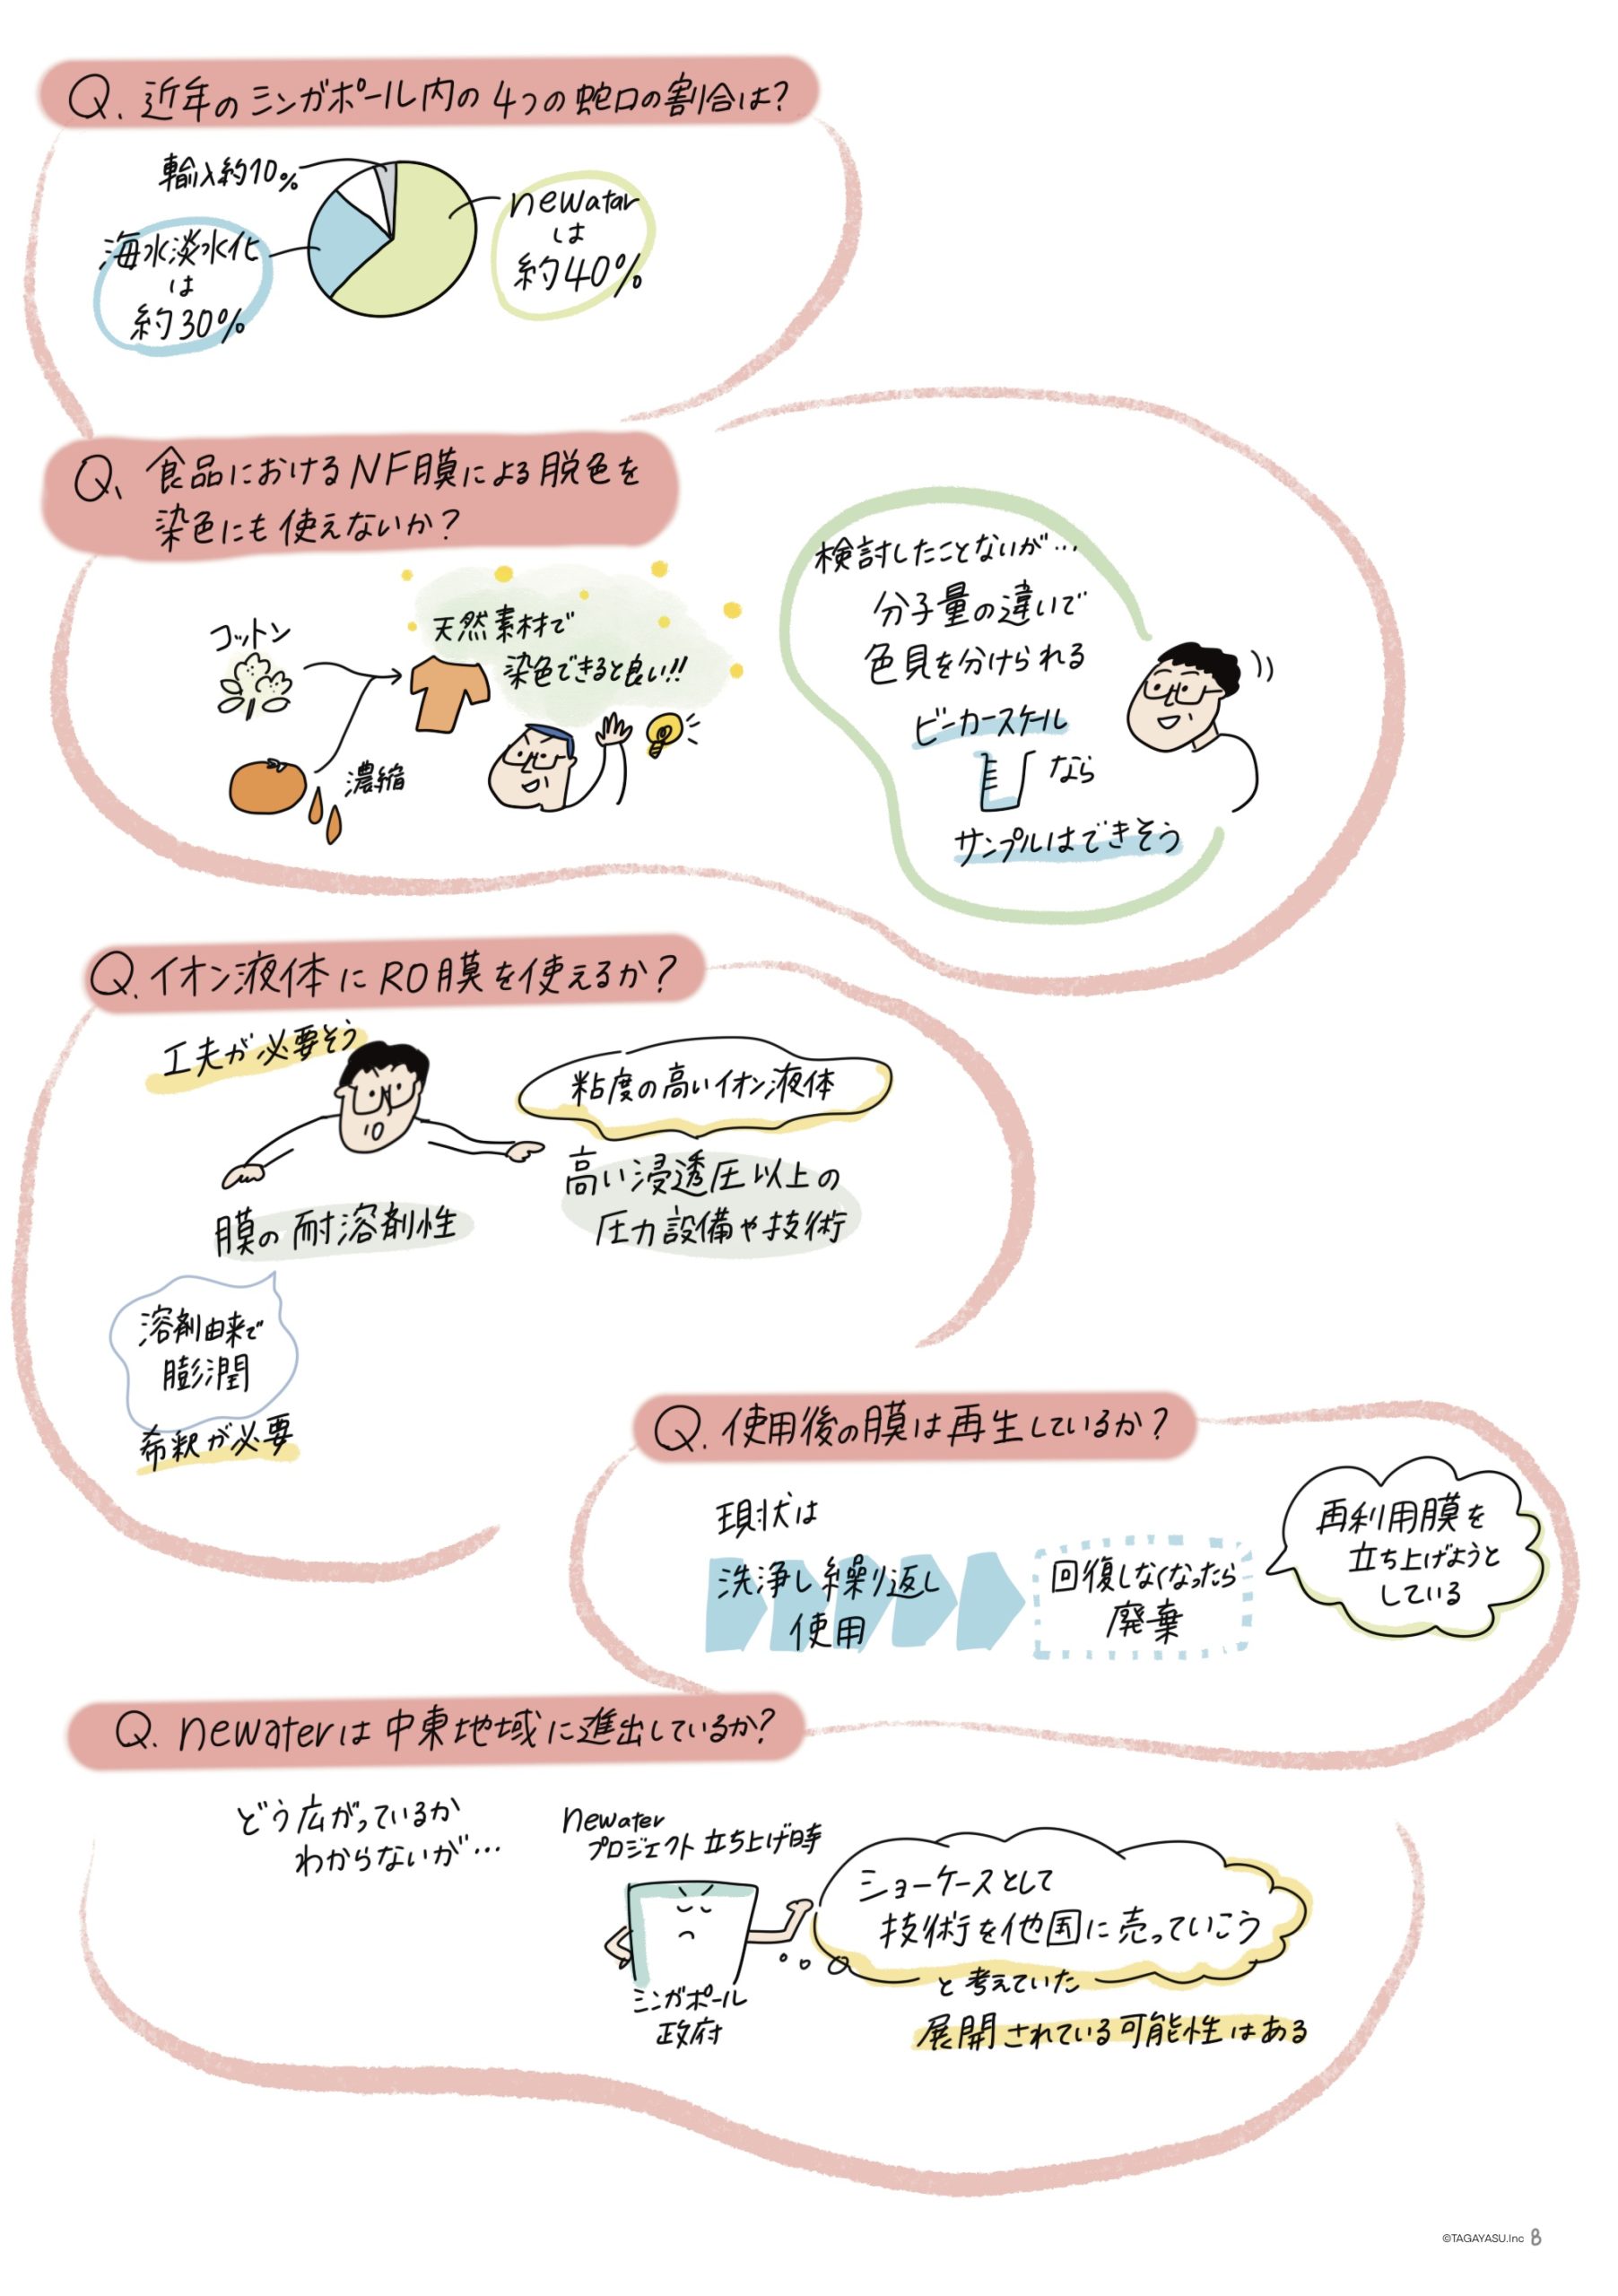 Q. 近年のシンガポール内の4つの蛇口の割合は?
輸入約10%
newatar
は
約40%
海水淡水化
は
約30%
Q、食品におけるNF膜による脱色を
染色にも使えないか?
コットン
天然素材で
染色できると良い!!
濃縮
検討したことないが…
分子量の違いで
色見を分けられる
ビーカースケール
なら
サンプルはできそう
Q.イオン液体にRO膜を使えるか?
工夫が必要そう
粘度の高いイオン液体
高い浸透圧以上の
圧力設備や技術
膜の耐溶剤性
溶剤由来で
膨潤
希釈が必要
Q.使用後の膜は再生しているか?
現状は
洗浄し繰り返し
使用
回復しなくなったら
廃棄
再利用膜を
立ち上げようと
している
Q. newaterは中東地域に進出しているか?
どう広がっているか
わからないが…
newater
プロジェクト立ち上げ時
シンガポール
政府
ショーケースとして
技術を他国に売っていこう
と考えていた
展開されている可能性はある
©TAGAYASU.Inc 8